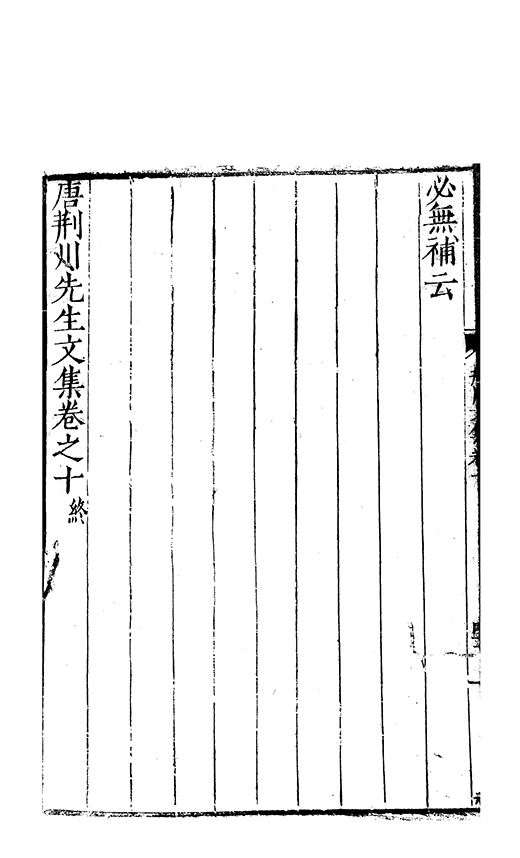 必無補云
唐荆川先生文集卷之十終